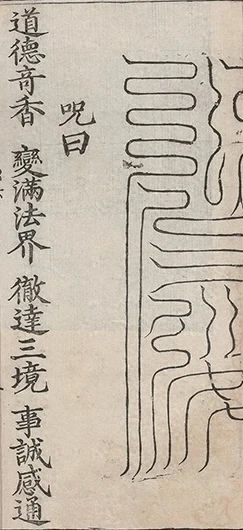 呪曰
道德竒香 變滿法界 徹達三境 事誠感通